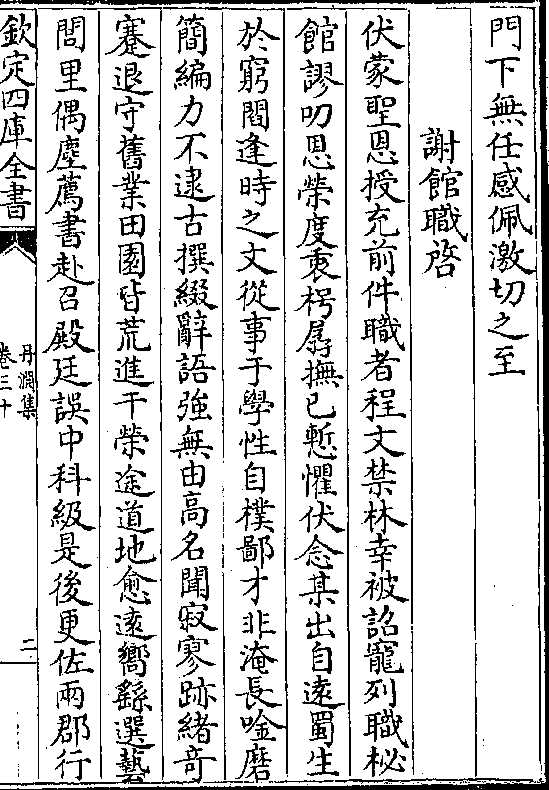 門下無任感佩激切之至
謝館職啓
伏蒙聖恩授充前件職者程文禁林幸被詔寵列職柲
館謬叨恩榮度衷樗孱撫已慙懼伏念某出自遠蜀生
於窮閻逢時之文從事于學性自樸鄙才非淹長唫磨
簡編力不逮古撰綴辭語強無由高名聞寂寥跡緒竒
蹇退守舊業田園皆荒進干榮途道地愈遠嚮繇選藝
閭里偶塵薦書赴召殿廷誤中科級是後更佐兩郡行
欽定四庫全書
丹淵集
卷三十
二